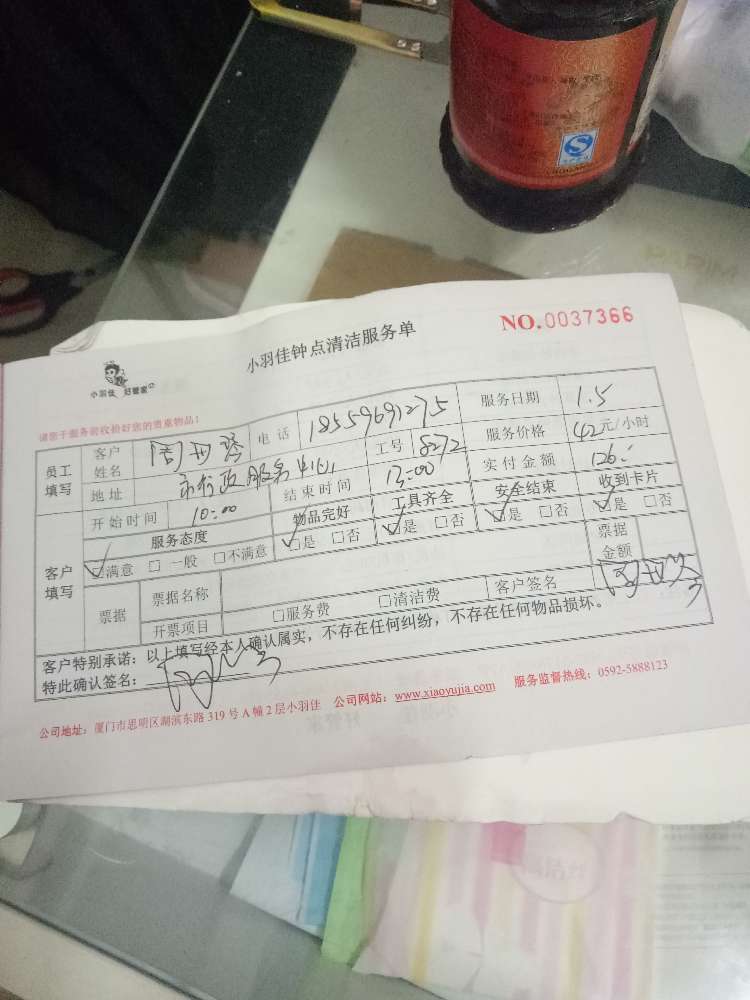 小羽佳钟点清洁服务单
NO.0037366
小羽佳 好管家
请您于服务前收拾好您的贵重物品!
员工填写 客户姓名 周 电话 18559691275 服务日期 1.5
地址 市行政服务中心 工号 8272 服务价格 42元/小时
开始时间 10:00 结束时间 13:00 实付金额 126.
客户填写 服务态度 物品完好 工具齐全 安全结束 收到卡片
☑满意 □一般 □不满意 ☑是 □否 ☑是 □否 ☑是 □否 ☑是 □否
票据 票据名称 票据金额
开票项目 □服务费 □清洁费 客户签名
客户特别承诺:以上填写经本人确认属实,不存在任何纠纷,不存在任何物品损坏。
特此确认签名:
公司地址:厦门市思明区湖滨东路319号A幢2层小羽佳 公司网站:www.xiaoyujia.com 服务监督热线:0592-5888123